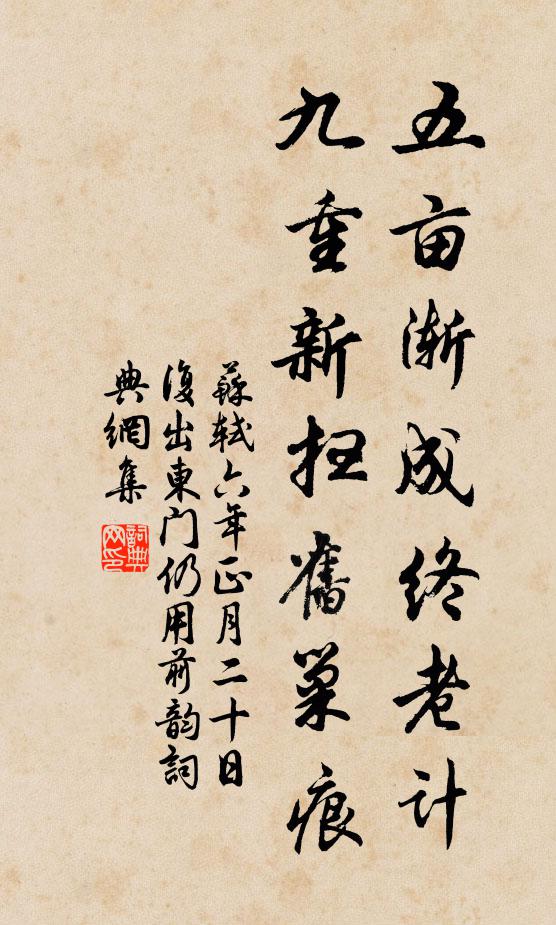 五亩渐成终老计
九重新扫舊巢痕
蘇軾六年正月二十日
復出東门仍用前韵詞
典網集
詞典网印